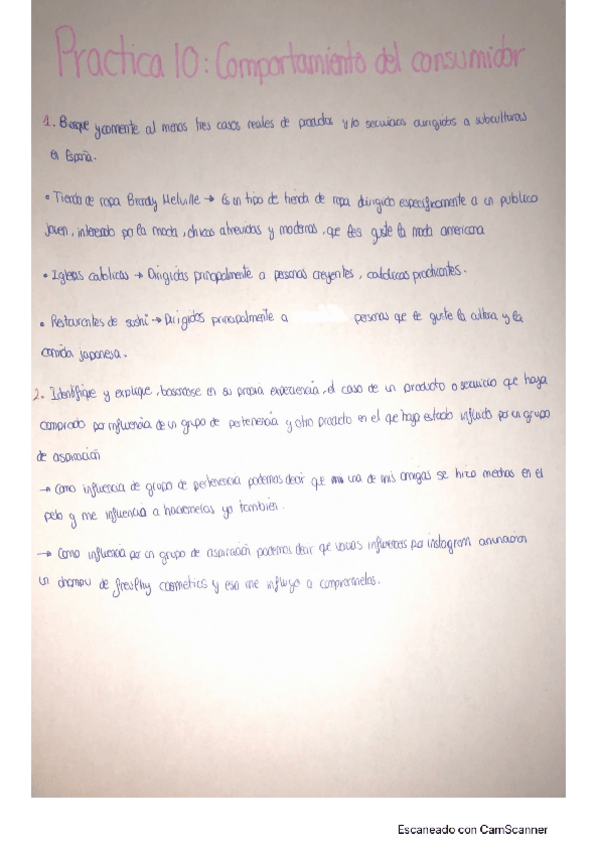 Practica 10: Comportamiento del consumidor
1. Busque y comente al menos tres casos reales de productos y/o servicios dirigidos a subculturas
en España.
• Tienda de ropa Brandy Melville → Es un tipo de tienda de ropa dirigido especificamente a un publico
joven, interesado por la moda, chicas atrevidas y modernas, que les guste la moda americana
• Iglesias catolicas → Dirigidas principalmente a personas creyentes, catolicas practicantes.
• Restaurantes de sushi → Dirigidos principalmente a personas que le guste la cultura y la
comida japonesa.
2. Identifique y explique, basandose en su propia experiencia, el caso de un producto o servicio que haya
comprado por influencia de un grupo de pertenencia y otro producto en el que haya estado influido por un grupo
de aspiración
→ Como influencia de grupo de pertenencia podemos decir que una de mis amigas se hizo mechas en el
pelo y me influencia a hacermelas yo tambien.
→ Como influencia por un grupo de aspiración podemos decir que varias influencers por instagram anunciaron
un champu de freshly cosmetics y eso me influyo a comprarmelos.
Escaneado con CamScanner